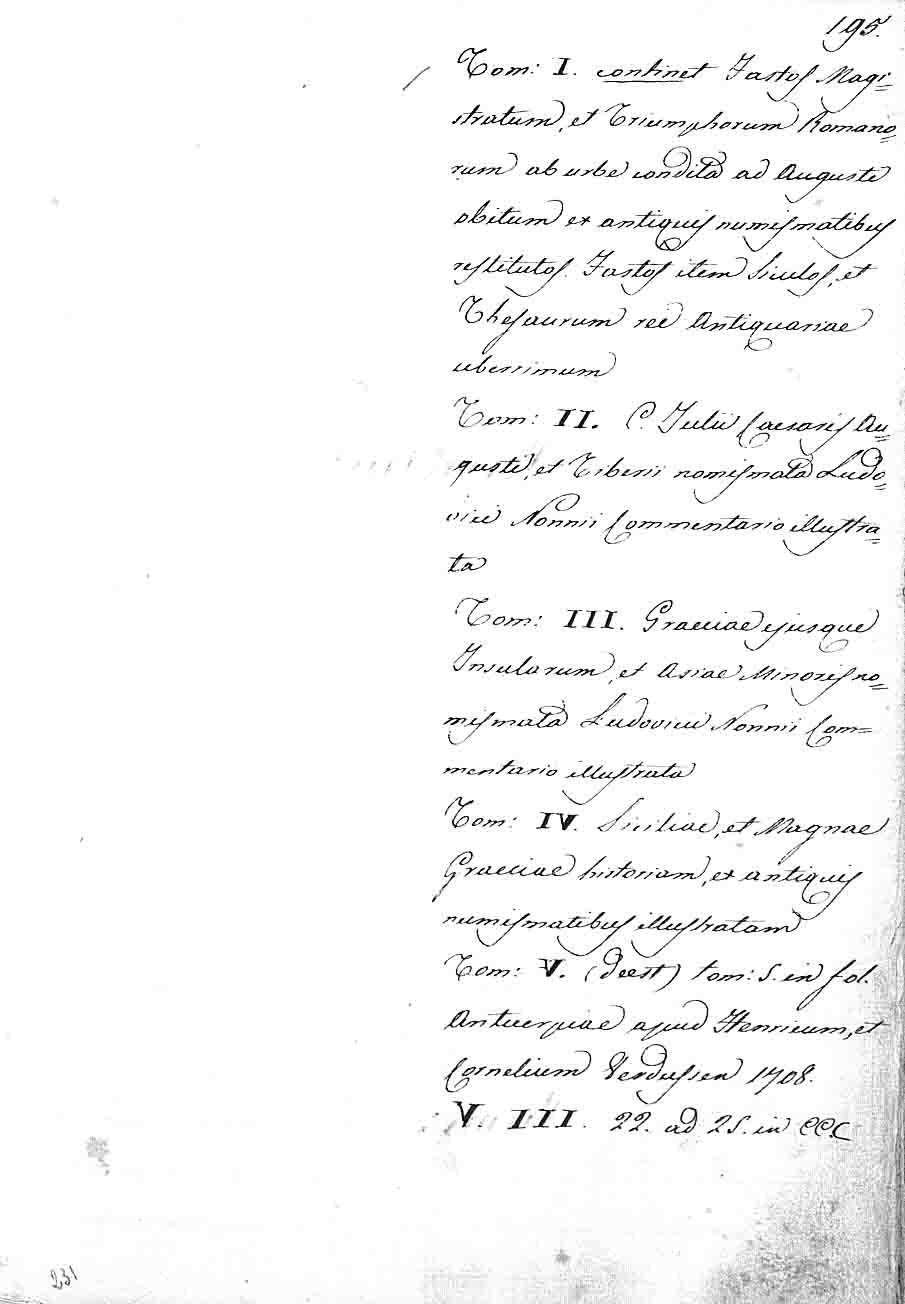 195.
Tom: I. continet Fastos Magi=
stratum, et Triumphorum Romano=
rum ab urbe condita ad Augusti
obitum ex antiquis numismatibus
restitutos. Fastos item Siculos, et
Thesaurum rei Antiquariae
uberrimum
Tom: II. C. Julii Caesaris Au=
gusti, et Tiberii nomismata Ludo=
vici Nonnii Commentario illustra=
ta
Tom: III. Graeciae ejusque
Insularum, et Asiae Minoris no=
mismata Ludovici Nonnii Com=
mentario illustrata
Tom: IV. Siciliae, et Magnae
Graeciae historiam, ex antiquis
numismatibus illustratam
Tom: V. (deest) tom: 5. in fol.
Antuerpiae apud Henricum, et
Cornelium Verdussen 1708.
V. III. 22. ad 25. in CC.C
231